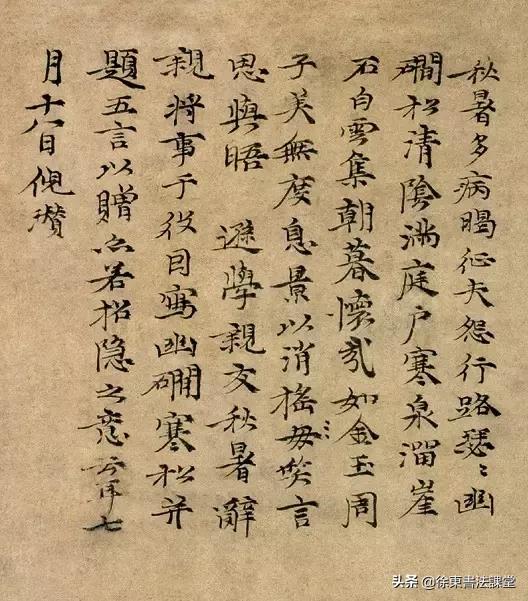 秋暑多病暍征夫怨行路瑟〻幽
磵松清陰滿庭户寒泉溜崖
石白雲集朝暮懷哉如金玉周
子美無度息景以消摇毋笑言
思與晤 遜學親友秋暑辭
親將事于役因寫幽磵寒松并
題五言以贈亦若招隐之意云耳七
月十八日倪瓚
头条 @徐東書法課堂